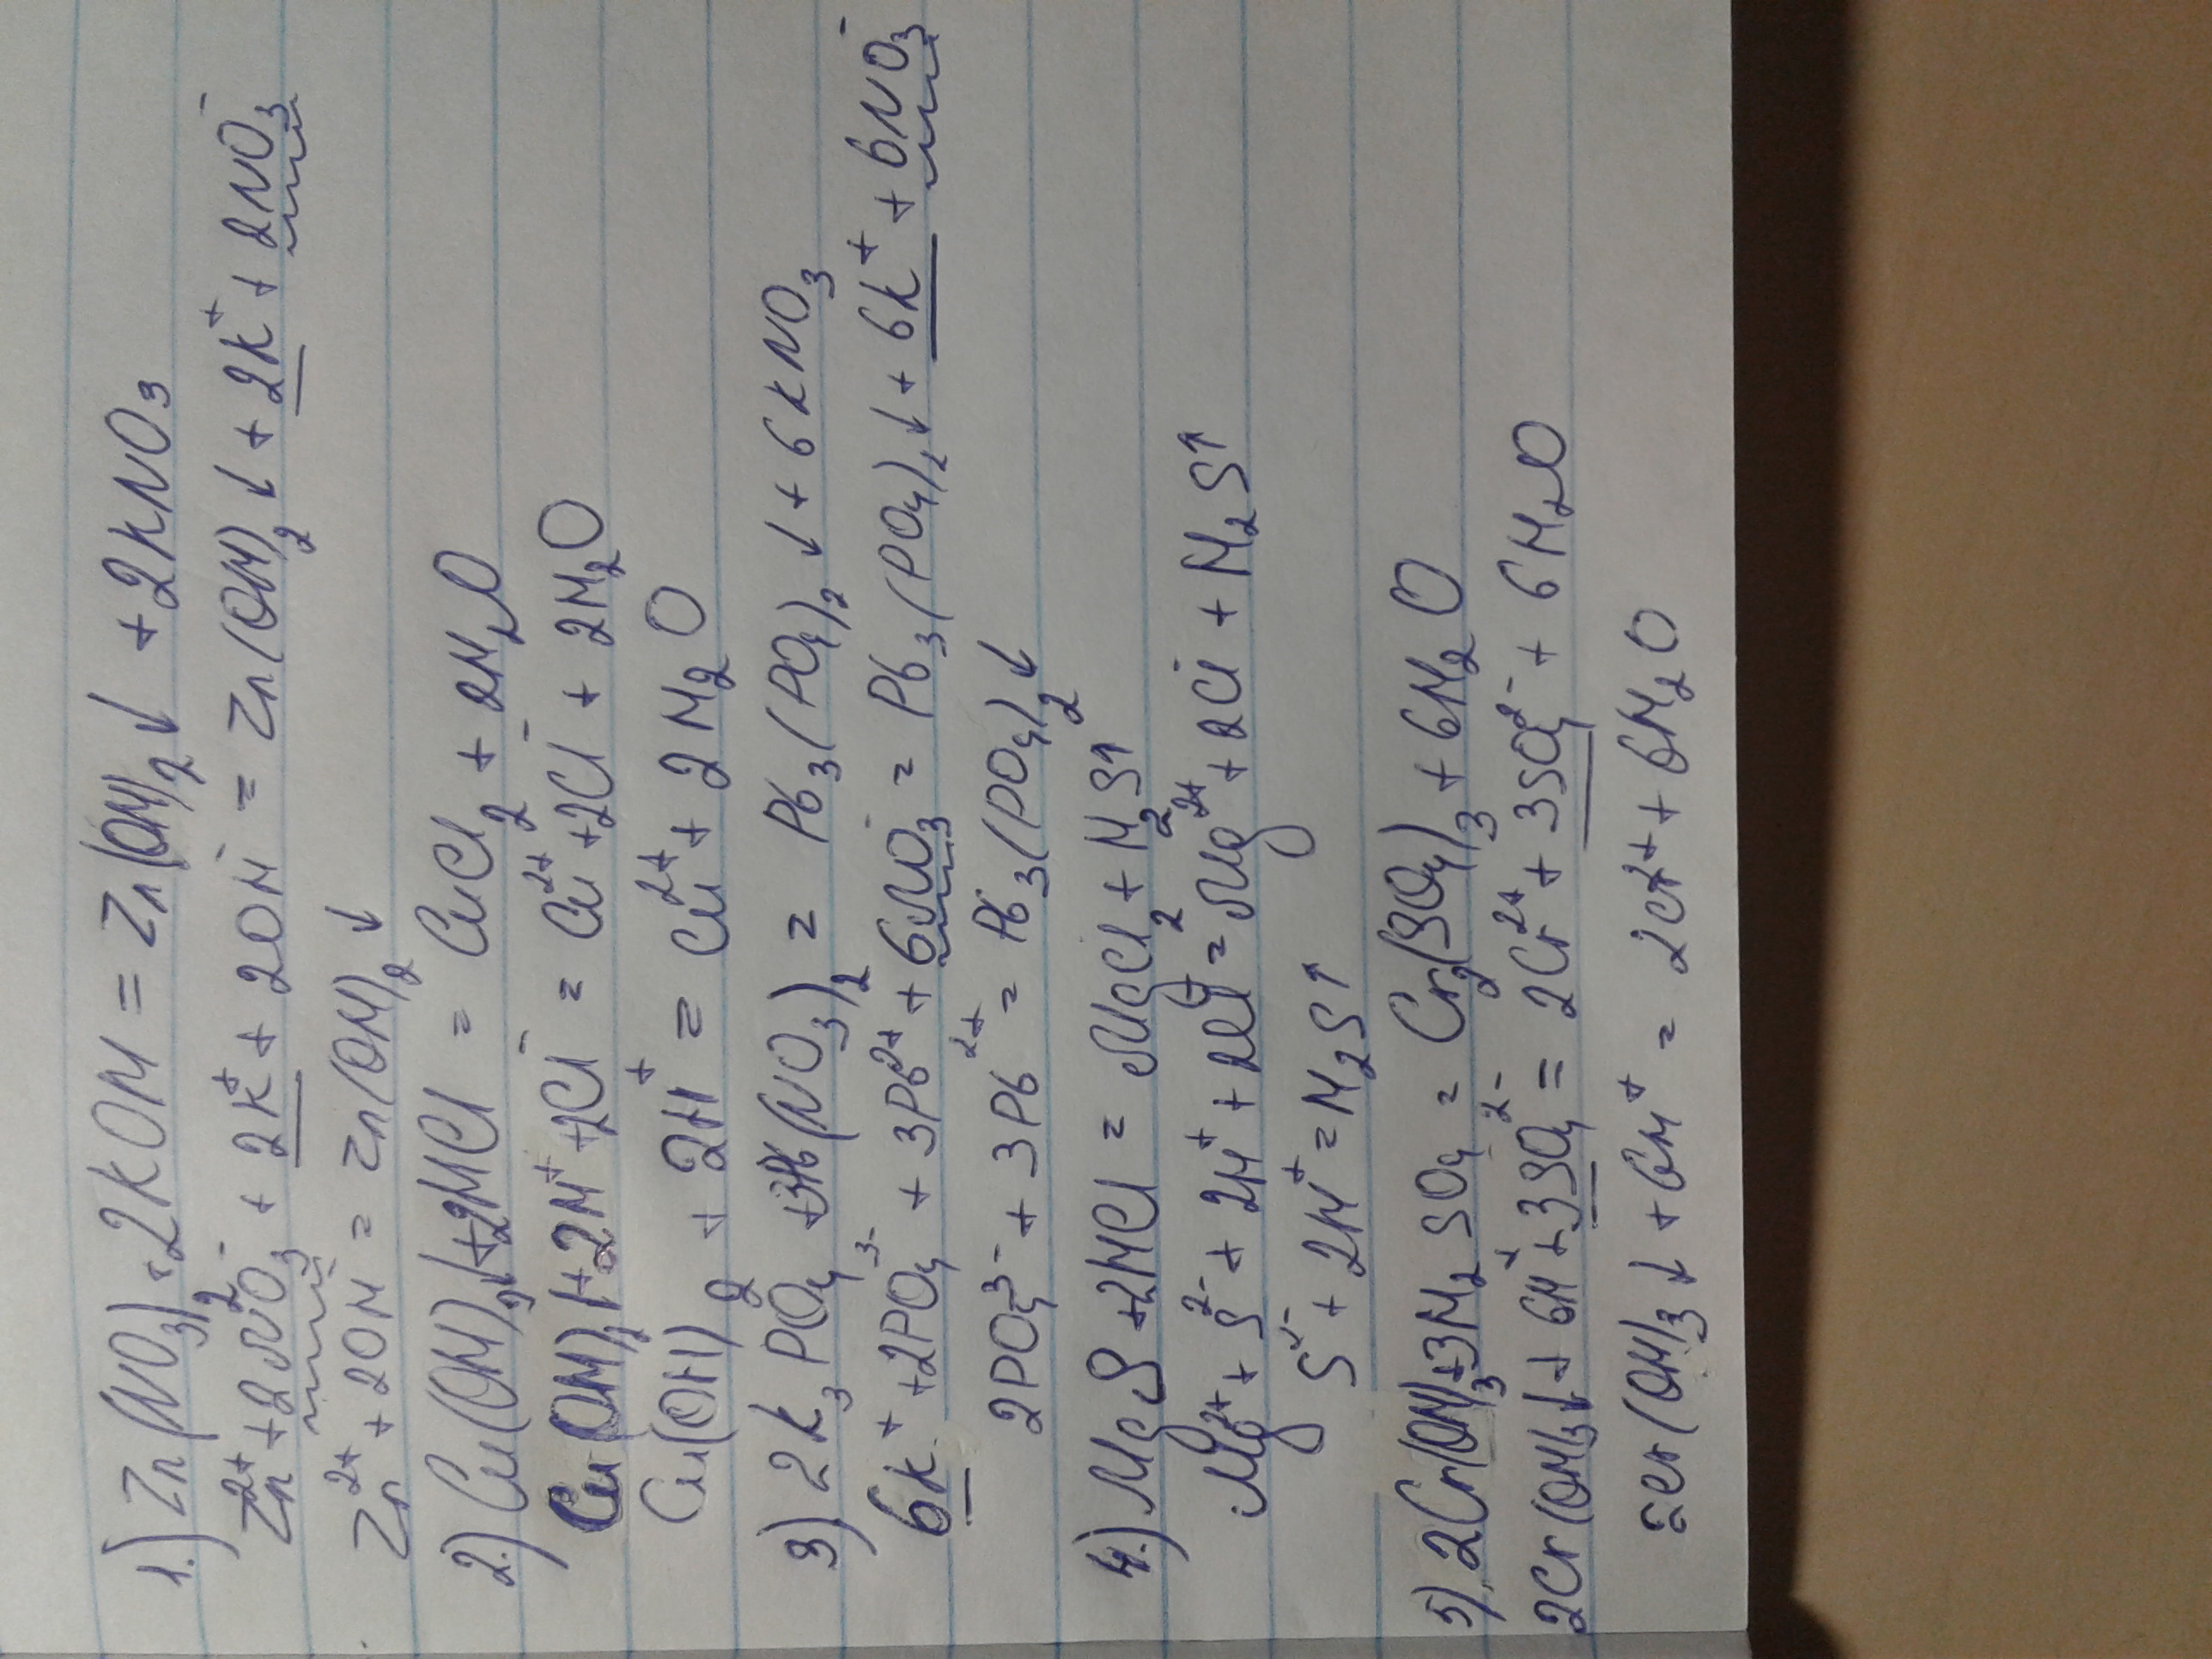 1.) Zn(NO₃)₂ + 2KOH = Zn(OH)₂↓ + 2KNO₃
Zn²⁺ + 2NO₃⁻ + 2K⁺ + 2OH⁻ = Zn(OH)₂↓ + 2K⁺ + 2NO₃⁻
Zn²⁺ + 2OH⁻ = Zn(OH)₂↓
2.) Cu(OH)₂↓ + 2HCl = CuCl₂ + 2H₂O
Cu(OH)₂↓ + 2H⁺ + 2Cl⁻ = Cu²⁺ + 2Cl⁻ + 2H₂O
Cu(OH)₂ + 2H⁺ = Cu²⁺ + 2H₂O
3) 2K₃PO₄ + 3Pb(NO₃)₂ = Pb₃(PO₄)₂↓ + 6KNO₃
6K⁺ + 2PO₄³⁻ + 3Pb²⁺ + 6NO₃⁻ = Pb₃(PO₄)₂↓ + 6K⁺ + 6NO₃⁻
2PO₄³⁻ + 3Pb²⁺ = Pb₃(PO₄)₂↓
4.) MgS + 2HCl = MgCl₂ + H₂S↑
Mg²⁺ + S²⁻ + 2H⁺ + 2Cl⁻ = Mg²⁺ + 2Cl + H₂S↑
S²⁻ + 2H⁺ = H₂S↑
5). 2Cr(OH)₃↓ + 3H₂SO₄ = Cr₂(SO₄)₃ + 6H₂O
2Cr(OH)₃↓ + 6H⁺ + 3SO₄²⁻ = 2Cr²⁺ + 3SO₄²⁻ + 6H₂O
2Cr(OH)₃↓ + 6H⁺ = 2Cr²⁺ + 6H₂O